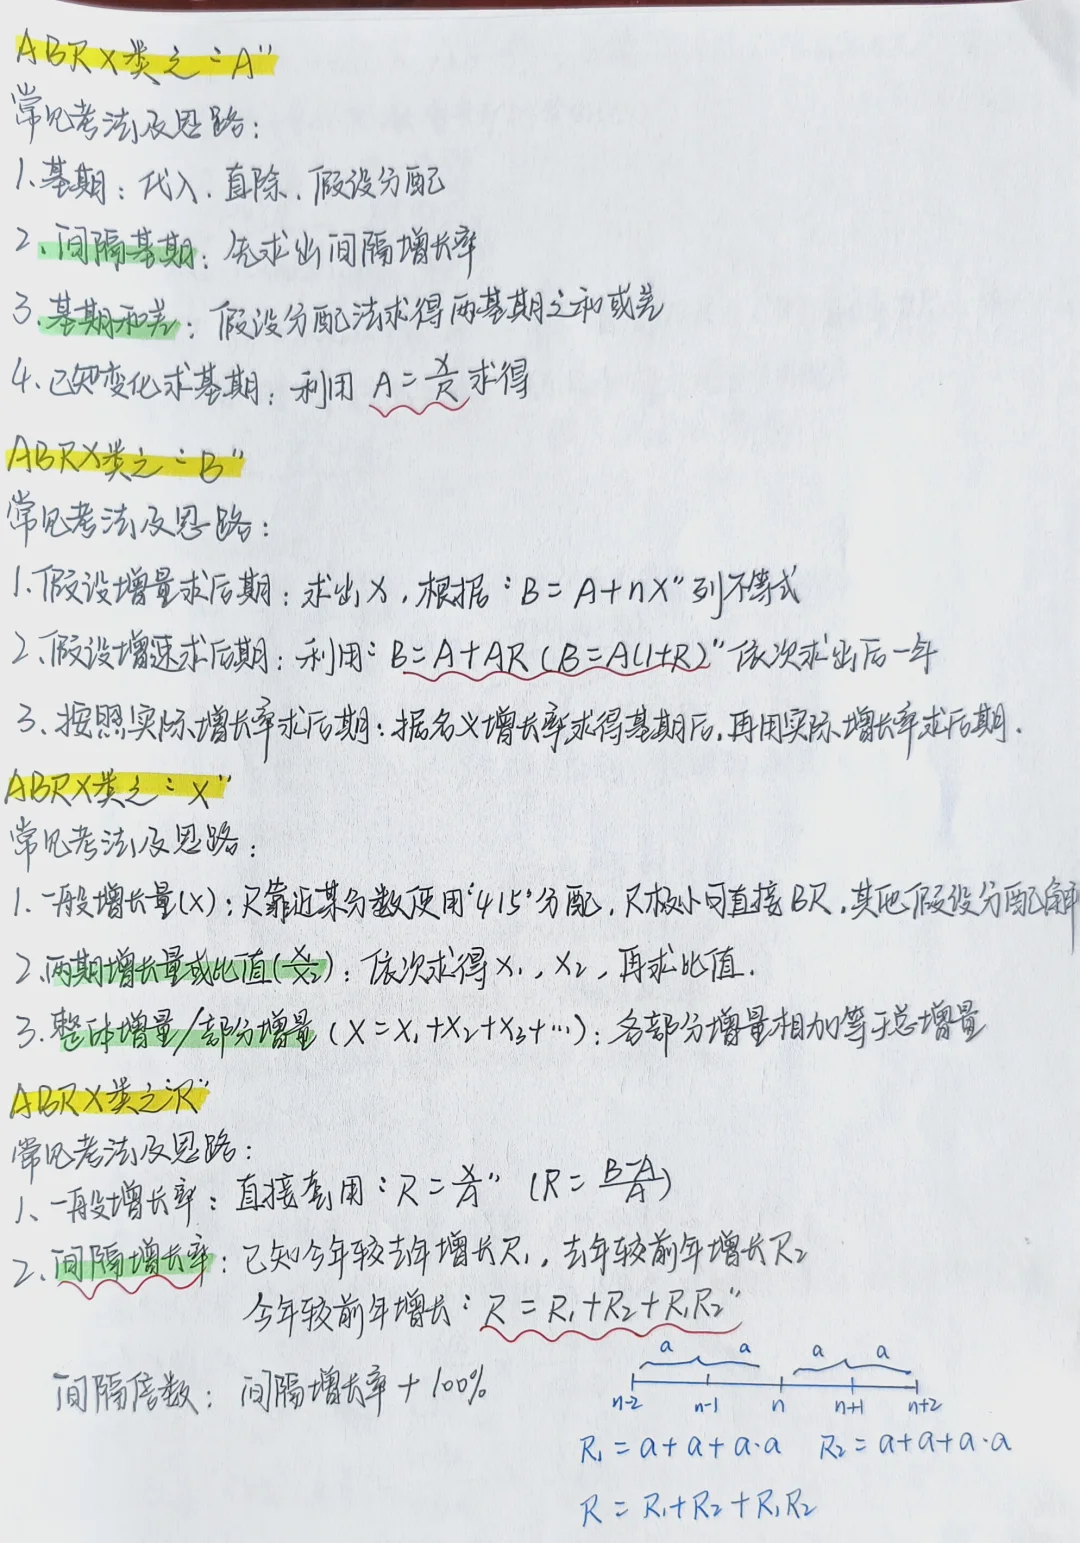 ABRX类之“A”
常见考法及思路：
1、基期：代入、直除、假设分配
2、间隔基期：先求出间隔增长率
3、基期和差：假设分配法求得两基期之和或差
4、已知变化求基期：利用 A=X/R 求得
ABRX类之“B”
常见考法及思路：
1、假设增量求后期：求出X，根据“B=A+nX”列不等式
2、假设增速求后期：利用“B=A+AR（B=A(1+R)”依次求出后一年
3、按照实际增长率求后期：据名义增长率求得基期后，再用实际增长率求后期．
ABRX类之“X”
常见考法及思路：
1、一般增长量(X)：R靠近某分数使用“415”分配，R极小可直接BR，其他假设分配解
2、两期增长量或比值(X₁/X₂)：依次求得X₁，X₂，再求比值．
3、整体增量/部分增量（X=X₁+X₂+X₃+…）：各部分增量相加等于总增量
ABRX类之“R”
常见考法及思路：
1、一般增长率：直接套用“R=X/A”（R=(B-A)/A）
2、间隔增长率：已知今年较去年增长R₁，去年较前年增长R₂
今年较前年增长“R=R₁+R₂+R₁R₂”
间隔倍数：间隔增长率+100%
a a a a
n-2 n-1 n n+1 n+2
R₁=a+a+a·a R₂=a+a+a·a
R=R₁+R₂+R₁R₂